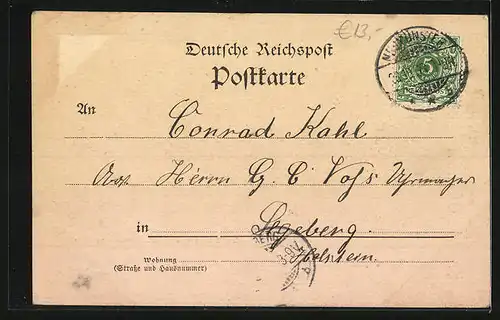 €13,-
Deutsche Reichspost
Postkarte
NEUMÜNSTER
5
An
Conrad Kahl
Adr. Herrn G. C. Voß Uhrmacher
in Segeberg
Holstein
Wohnung
(Straße und Hausnummer)